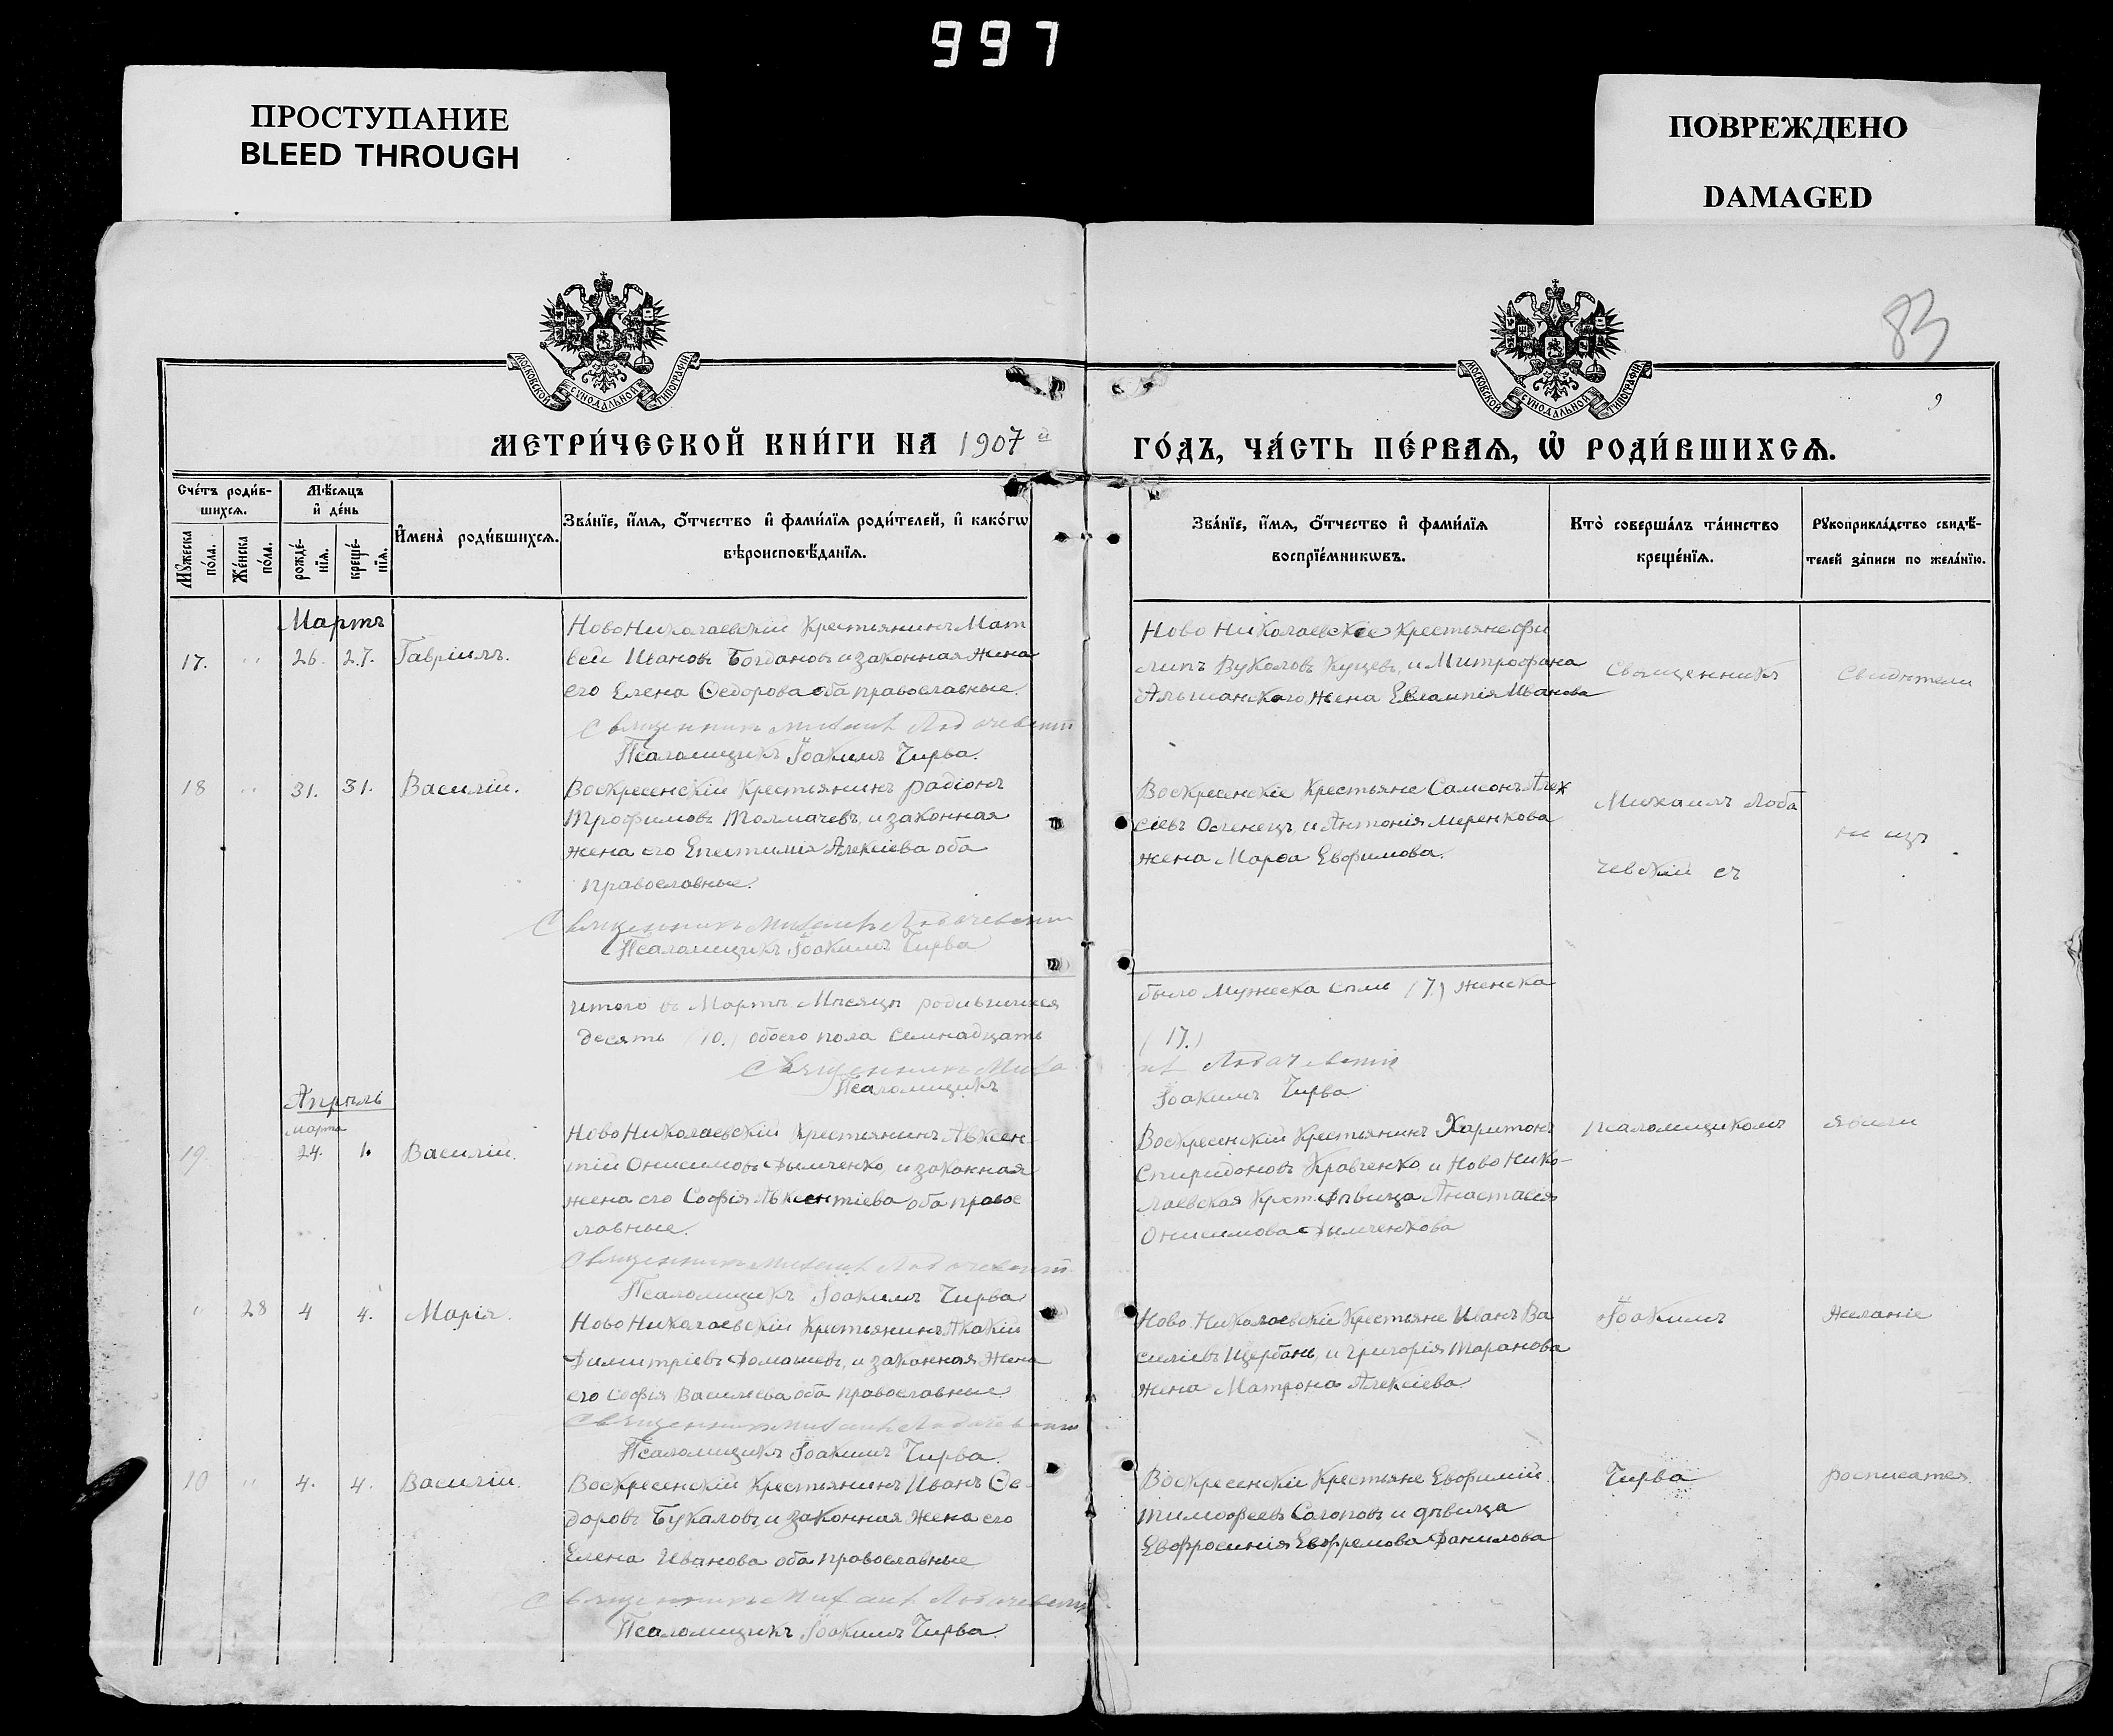 997
ПРОСТУПАНИЕ
BLEED THROUGH
ПОВРЕЖДЕНО
DAMAGED
83
МОСКОВСКОЙ СУНОДАЛЬНОЙ ТИПОГРАФІИ
МОСКОВСКОЙ СУНОДАЛЬНОЙ ТИПОГРАФІИ
МЕТРИ́ЧЕСКОЙ КНИ́ГИ НА 1907 й
ГО́ДЪ, ЧА́СТЬ ПЕ́РВАѦ, Ѡ҆ РОДИ́ВШИХСѦ.
Сче́тъ роди́в-
шихсѧ.
Мѣ́сѧцъ
и҆ де́нь
Мꙋ́жеска
по́ла.
Же́нска
по́ла.
рожде́-
нїѧ.
креще́-
нїѧ.
И҆мена̀ роди́вшихсѧ.
Зва́нїе, и҆́мѧ, ѻ҆́тчество и҆ фами́лїѧ роди́телей, и҆ како́гѡ
вѣроисповѣ́данїѧ.
Зва́нїе, и҆́мѧ, ѻ҆́тчество и҆ фами́лїѧ
воспрїе́мникѡвъ.
Кто̀ соверша́лъ та́инство
креще́нїѧ.
Рꙋкоприкла́дство свидѣ́-
телей за́писи по жела́нїю.
Мартъ
17. " 26. 27. Гавріилъ.
НовоНиколаевскій Крестьянинъ Мат
вей Ивановъ Богдановъ и законная жена
его Елена Ѳедорова оба православные.
Священникъ Михаилъ Лобачевскій
Псаломщикъ Іоакимъ Чирва.
Ново Николаевскіе Крестьяне Фи
липъ Вуколовъ Куцевъ, и Митрофана
Альшанскаго жена Евлампія Иванова
Священникъ
Свидѣтели
18 " 31. 31. Василій.
Воскресенскій Крестьянинъ Радіонъ
Трофимовъ Толмачевъ, и законная
жена его Епистимія Алексіева оба
православные.
Священникъ Михаилъ Лобачевскій
Псаломщикъ Іоакимъ Чирва
Воскресенскіе Крестьяне Самсонъ Алек
сіевъ и Антонія Меренкова
жена Марѳа Евфимова.
Михаилъ Лоба
чевскій съ
ни изъ
Итого въ Мартѣ Мѣсяцѣ родившихся
десять (10.) обоего пола семнадцать
Священникъ Миха
Псаломщикъ
было Мужеска семь (7.) женска
(17.)
илъ Лобачевскій
Іоакимъ Чирва
Апрѣль
марта
19. 24. 1. Василій.
НовоНиколаевскій Крестьянинъ Авксен-
тій Онисимовъ Дымченко, и законная
жена его Софія Авксентіева оба правос
лавные.
Священникъ Михаилъ Лобачевскій
Псаломщикъ Іоакимъ Чирва
Воскресенскій Крестьянинъ Харитонъ
Спиридоновъ Кравченко, и Ново Нико-
лаевская Крест. Дѣвица Анастасія
Онисимова Дымченкова
псаломщикомъ
явили
" 28 4 4. Марія.
НовоНиколаевскій Крестьянинъ Акакій
Димитріевъ Домашевъ, и законная жена
его Софія Василіева оба православные
Священникъ Михаилъ Лобачевскій
Псаломщикъ Іоакимъ Чирва.
Ново Николаевскіе Крестьяне Иванъ Ва
силіевъ Щербань, и Григорія Таранова
жена Матрона Алексіева
Іоакимъ
желаніе
10 " 4. 4. Василій.
Воскресенскій Крестьянинъ Иванъ Ѳе-
доровъ Букаловъ, и законная жена его
Елена Иванова оба православные
Священникъ Михаилъ Лобачевскій
Псаломщикъ Іоакимъ Чирва.
Воскресенскіе Крестьяне Евфимій
Тимофеевъ Сагоповъ и дѣвица
Евфросинія Евфремова Данилова
Чирва
росписатся